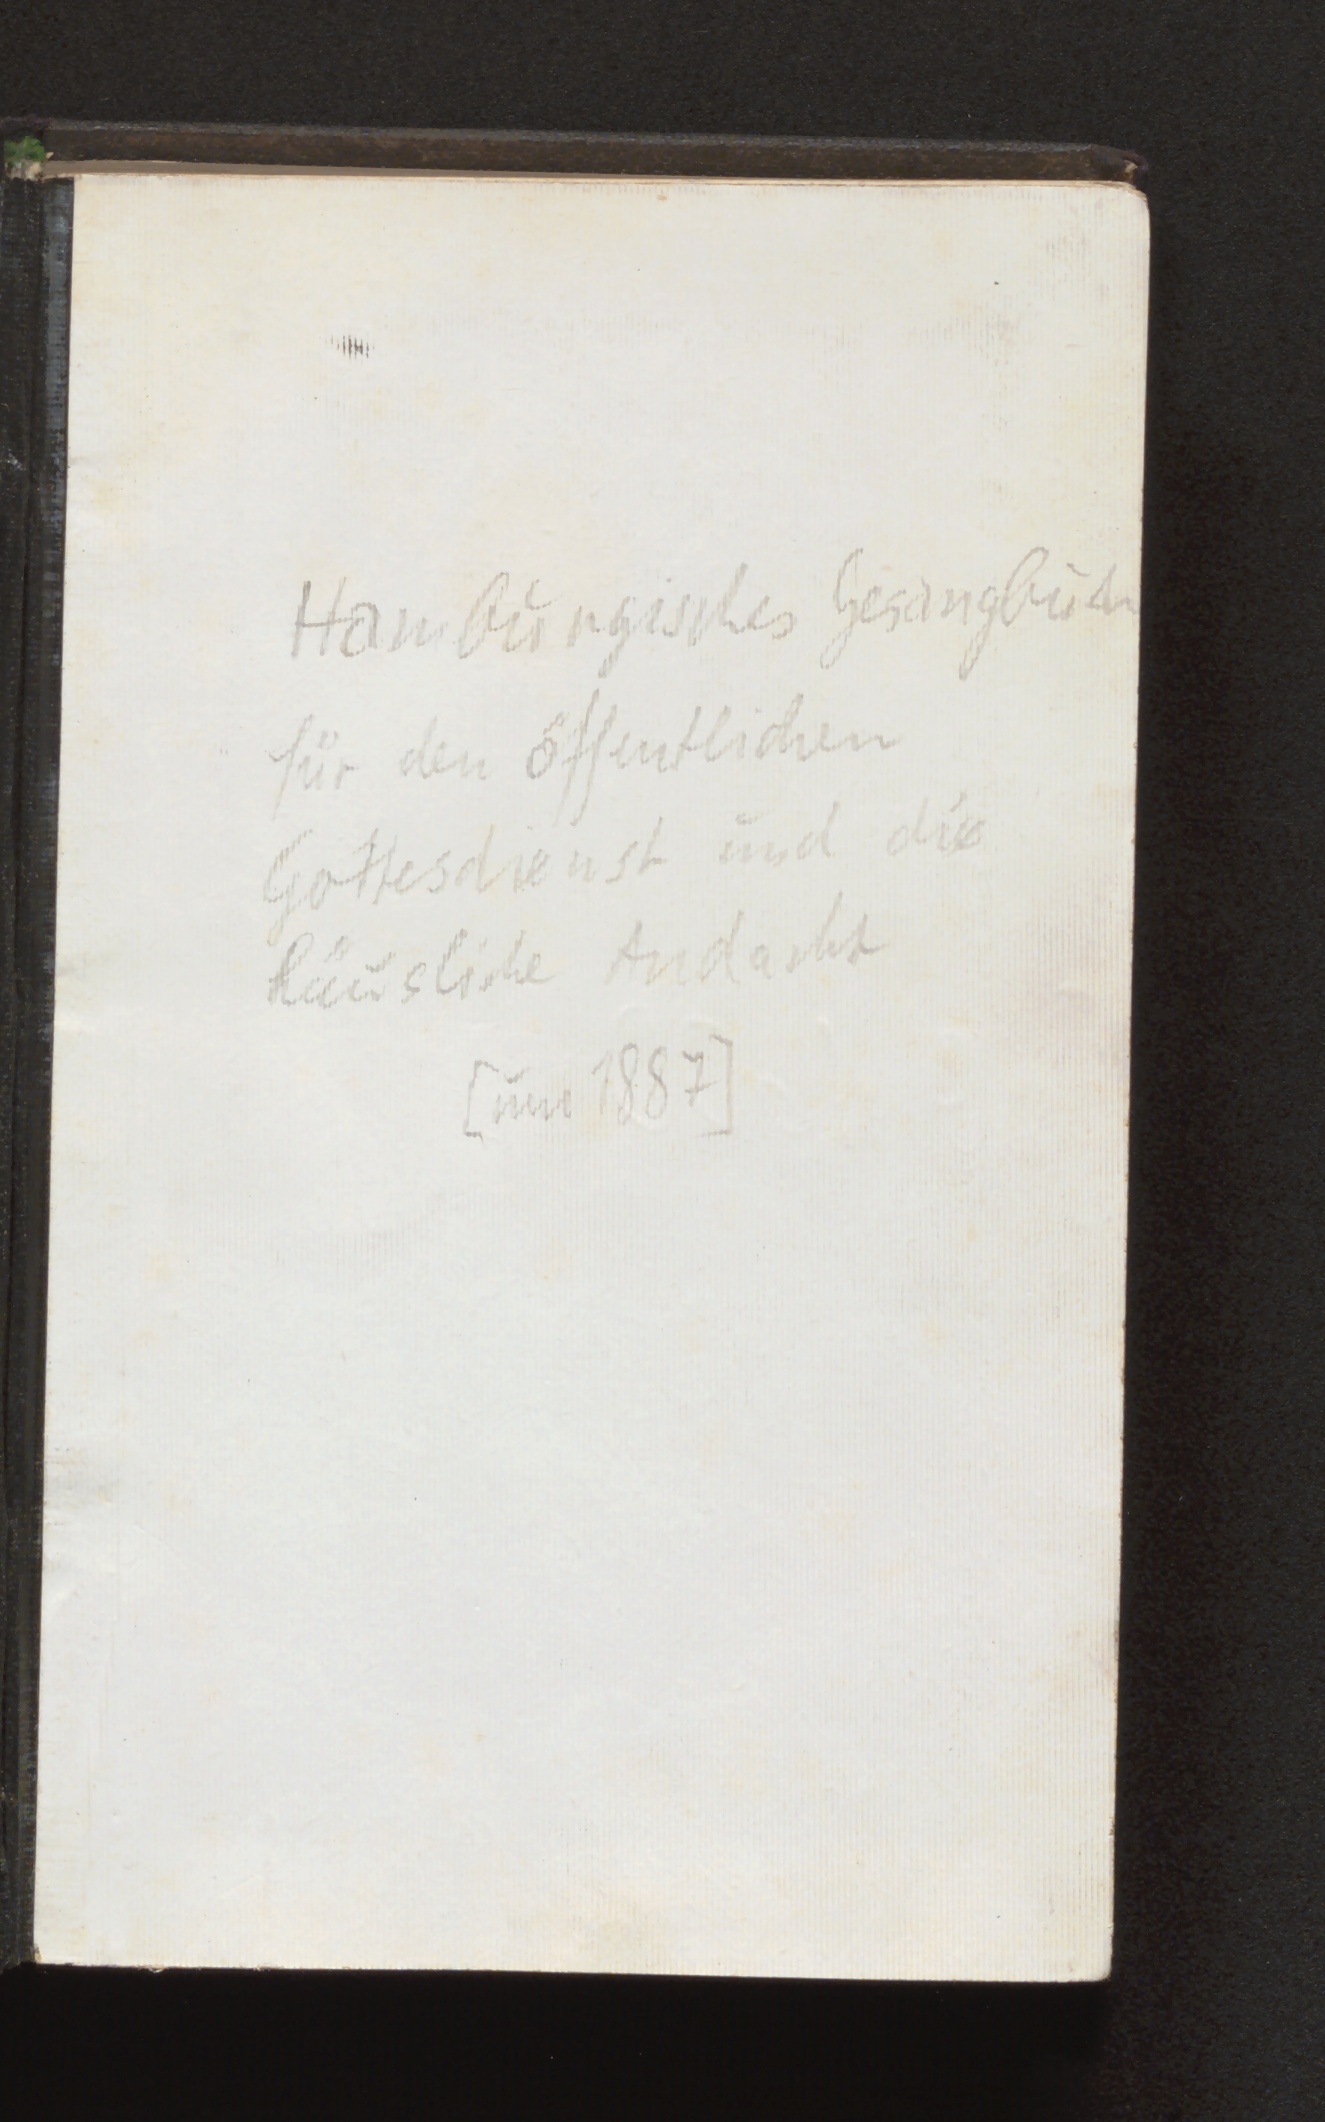 Hamburgisches Gesangbuch
für den öffentlichen
Gottesdienst und die
häusliche Andacht
[um 1887]